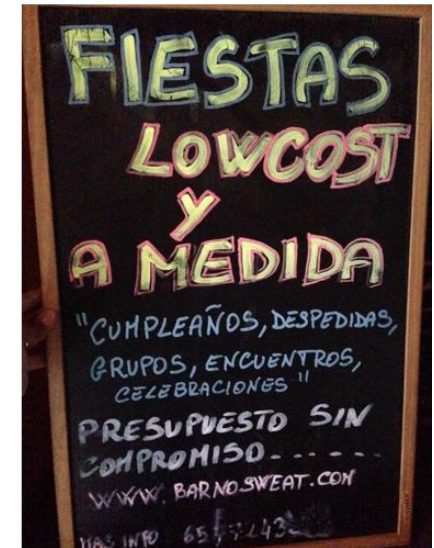 FIESTAS
LOWCOST
Y
A MEDIDA
"CUMPLEAÑOS, DESPEDIDAS,
GRUPOS, ENCUENTROS,
CELEBRACIONES"
PRESUPUESTO SIN
COMPROMISO.......
WWW.BARNOSWEAT.COM
MAS INFO